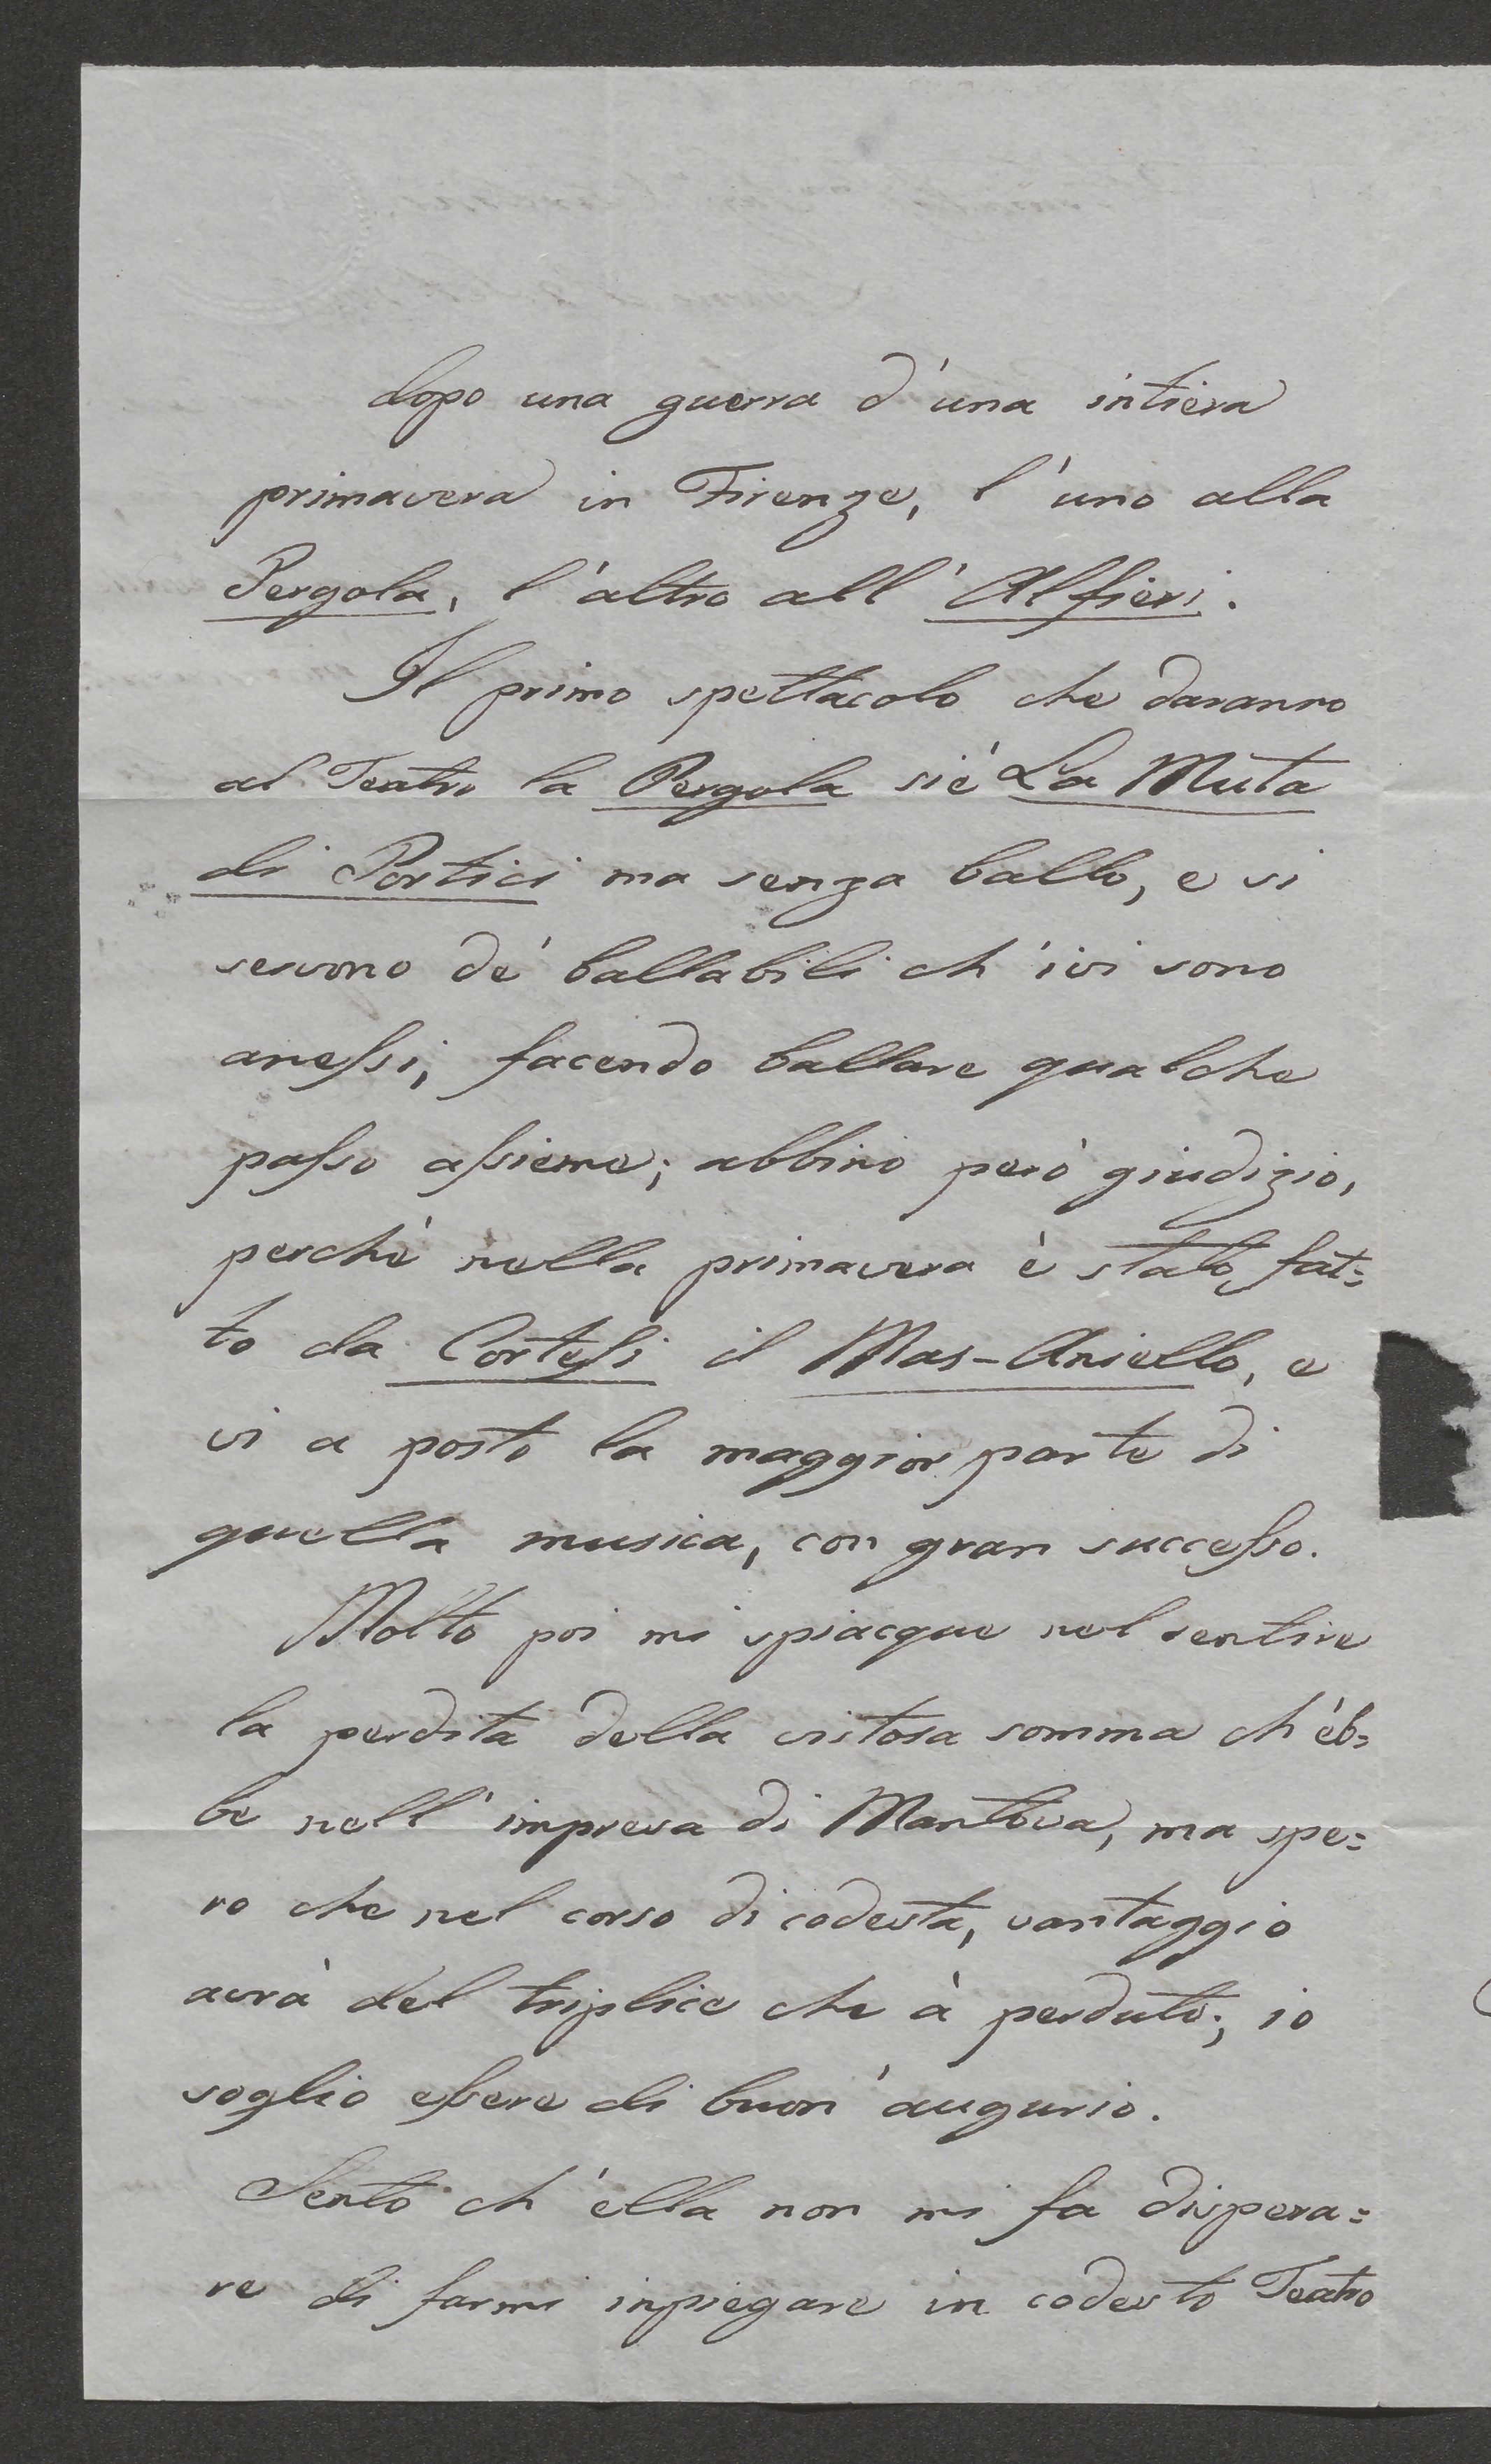 dopo una guerra d'una intiera
primavera in Firenze, l'uno alla
Pergola, l'altro all'Alfieri.
Il primo spettacolo che daranno
al Teatro la Pergola sié La Muta
di Portici ma senza ballo, e si
servono de' ballabili ch'ivi sono
anessi, facendo ballare qualche
passo assieme; abbino però giudizio,
perchè nella primavera è stato fat=
to da Cortesi il Mas-Aniello, e
vi a posto la maggior parte di
quella musica, con gran successo.
Molto poi mi spiacque nel sentire
la perdita della vistosa somma ch'eb=
be nell'impresa di Mantova, ma spe=
ro che nel corso di codesta, vantaggio
avrà del triplice che à perduto; io
soglio essere di buon'augurio.
Sento ch'ella non mi fa dispera=
re di farmi inpiegare in codesto Teatro